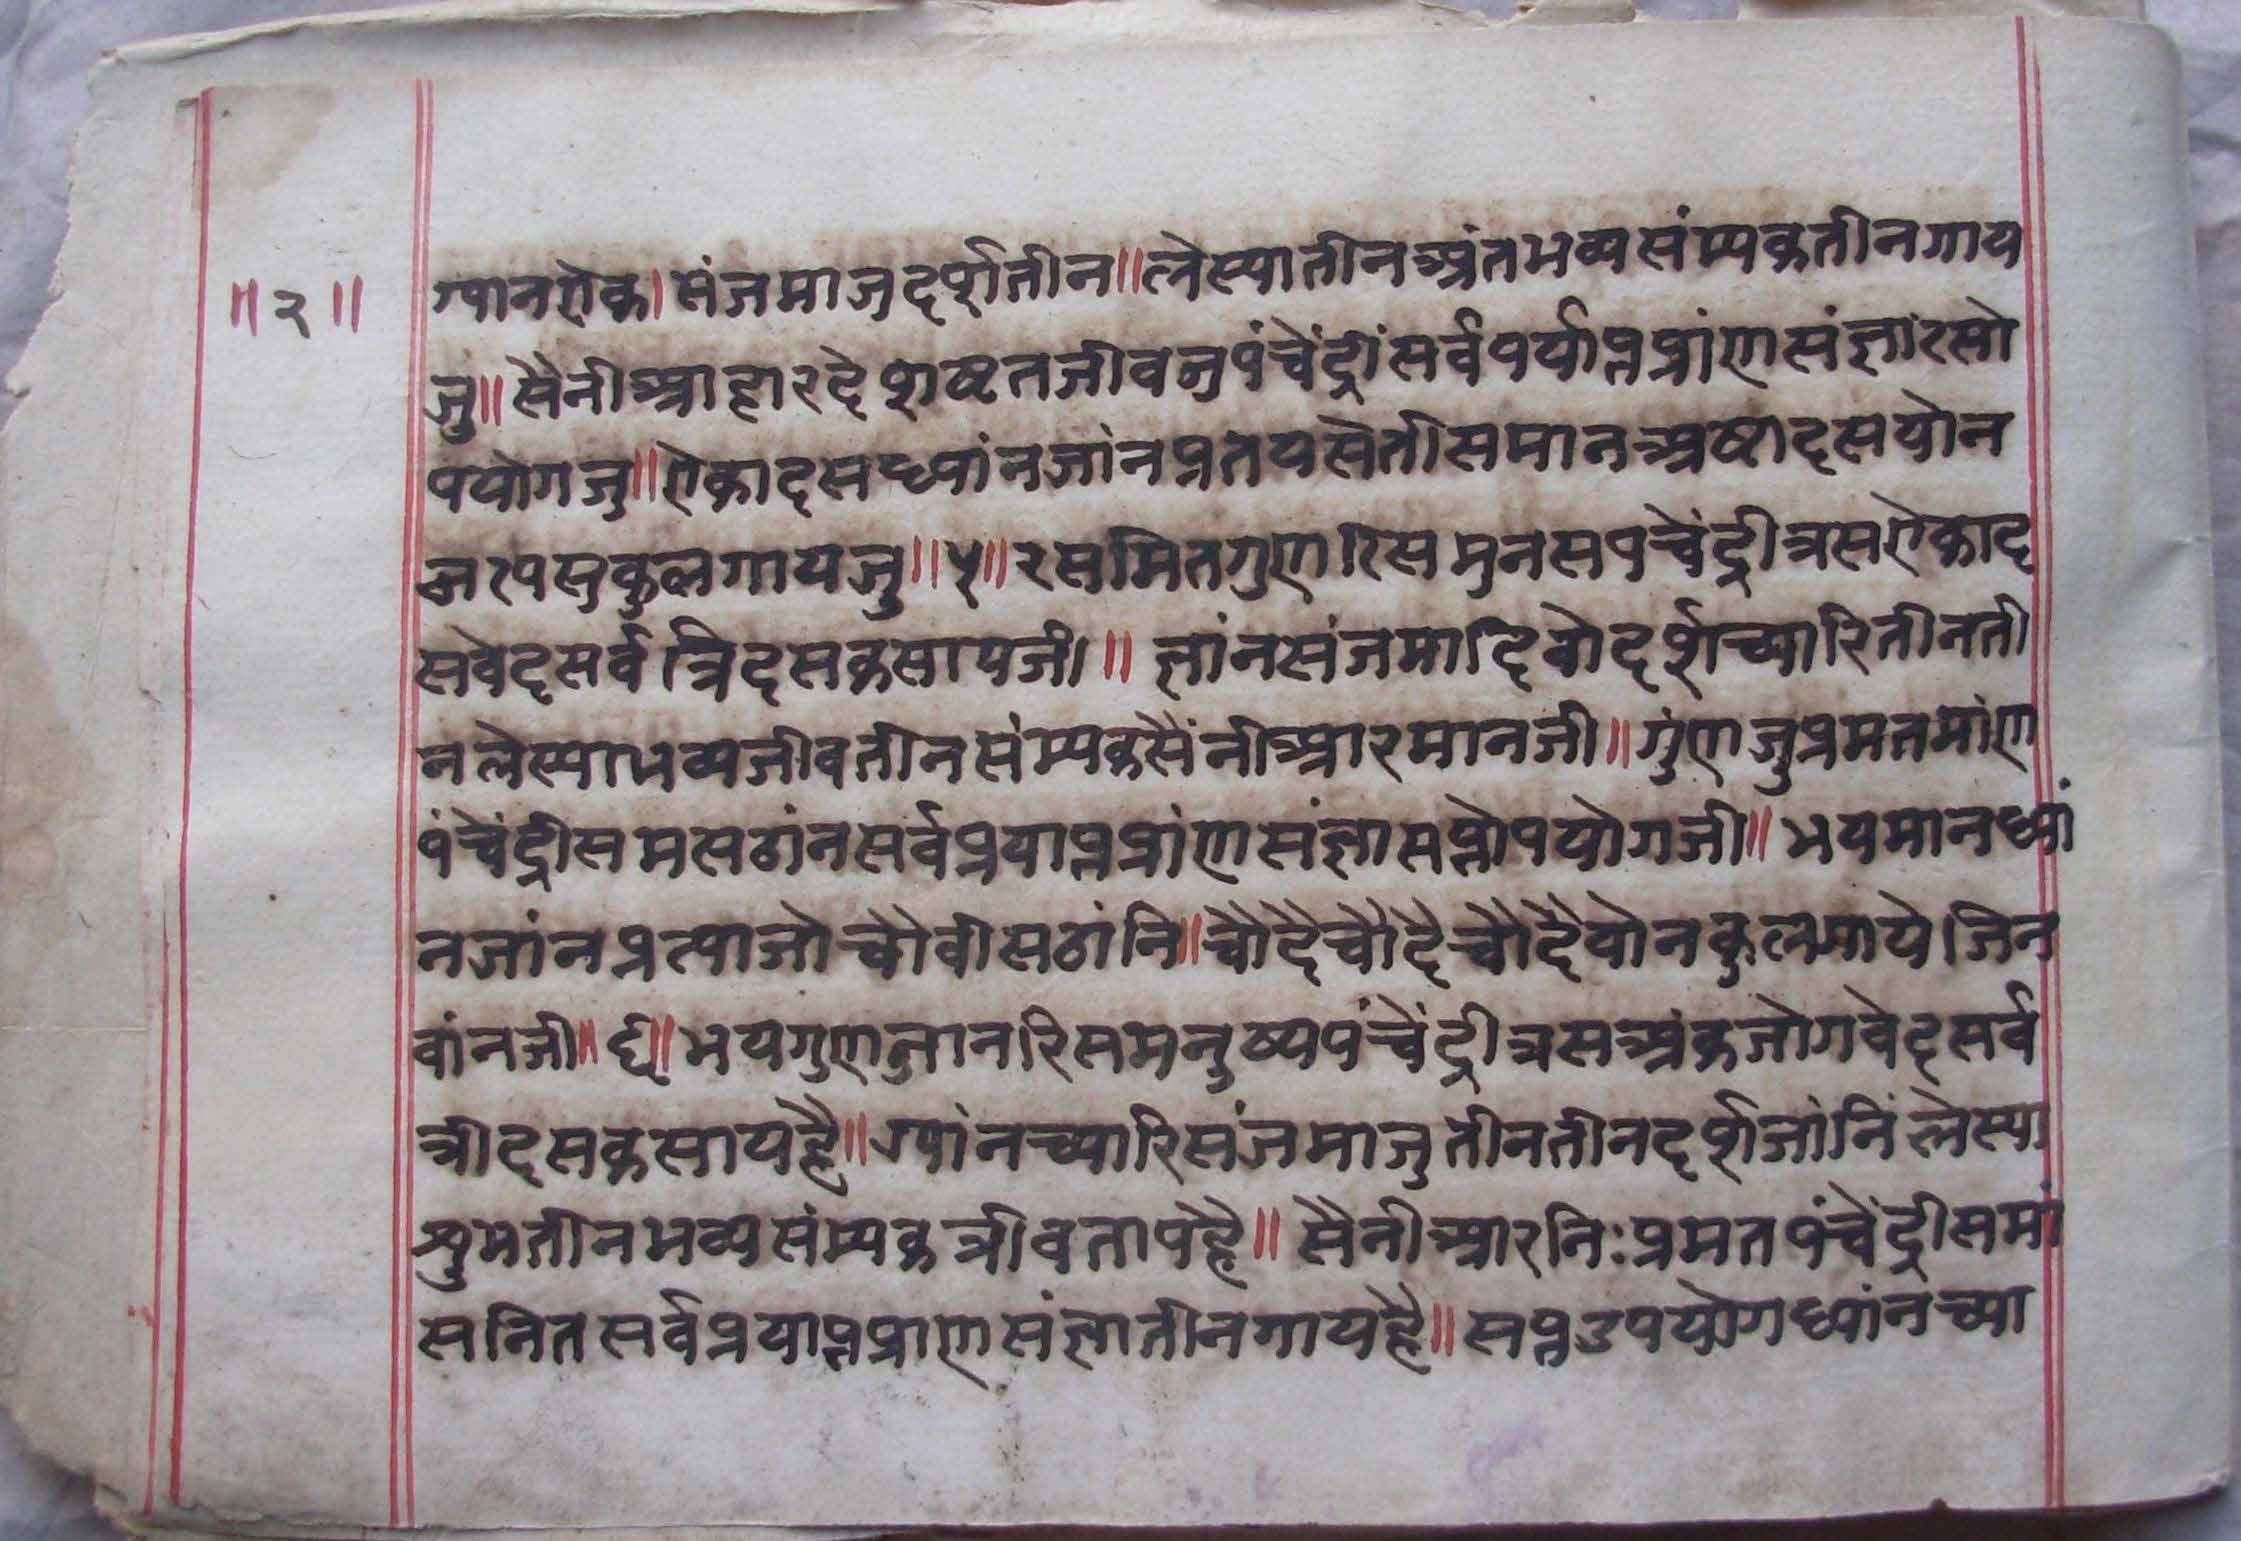 ॥२॥
ग्यानऐक।संजमाजुदर्शतीन॥लेस्यातीनअंतभव्यसंम्यकतीनगाय
जु॥सैनीआहारदेशव्रतजीवजुपंचेंद्रीसर्वपर्याप्तप्रांणसंज्ञारसो
पयोगजु॥ऐकादसध्यांनजांनप्रतयसैतीसमानअष्टादसयोन
जरपसुकुलगायजु॥५॥रसमितगुणरिसमुनसपचेंद्रीत्रसऐकाद
सवेदसर्वत्रिदसकसायजी॥ज्ञांनसंजमादिवोदर्शच्यारितीनती
नलेस्याभव्यजीवतीनसंम्यकसैंनीआरमानजी॥गुंणजुप्रमतमांण
पंचेंद्रीसमसठांनसर्वप्रयाप्तप्रांणसंज्ञासप्तोपयोगजी॥भयमानध्यां
नजांनप्रत्याजोचौवीसठांनि॥चौदैचौदैचौदैयोनकुलगायेजिन
वांनजी॥६॥भयगुणजानरिसमनुष्यपंचेंद्रीत्रसअंकजोगवेदसर्व
त्रीदसकसायहै॥ग्यांनच्यारिसंजमाजुतीनतीनदर्शजांनिंलेस्या
शुभतीनभव्यसंम्यकत्रीवतापहै॥सैनीआरनिःप्रमतपंचेंद्रीसमां
सनितसर्वप्रयाप्तप्राणसंज्ञातीनगायहै॥सप्तउपयोगध्यांनच्या